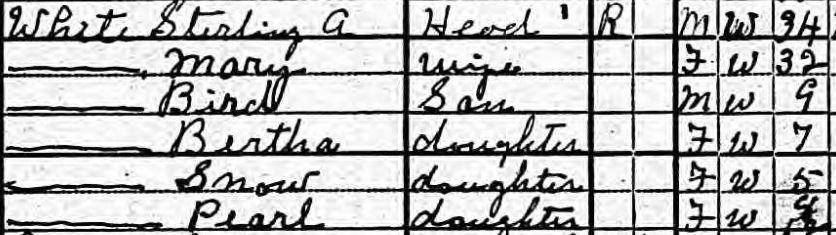 White Sterling A Head R M W 34
Mary wife F W 32
Bird Son M W 9
Bertha daughter F W 7
Snow daughter F W 5
Pearl daughter F W